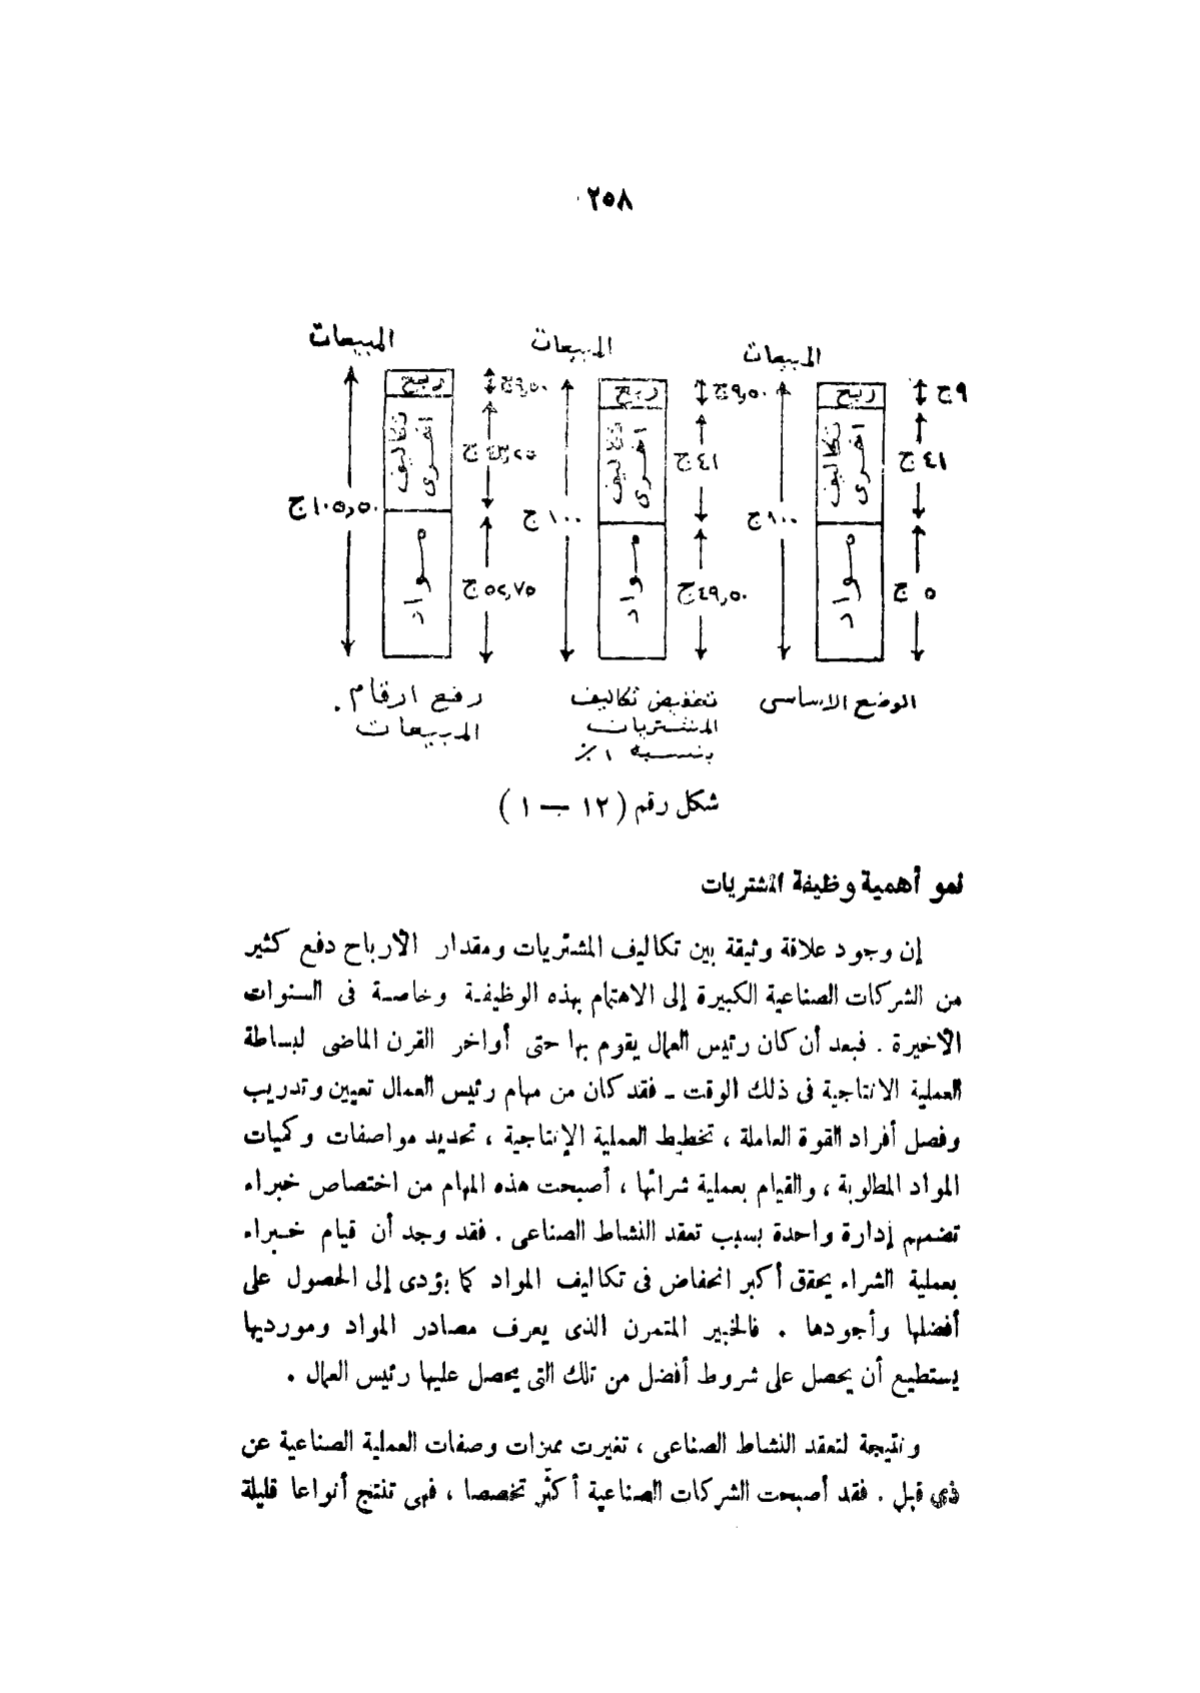 ٢٥٨
المبيعات
المبيعات
المبيعات
ربح
ربح
ربح
٩ج
٩,٥٠ج
تكاليف اخرى
تكاليف اخرى
تكاليف اخرى
٤١ج
٤١ج
١٠٠ج
١٠٥,٥٠ج
مواد
مواد
مواد
٥٠ج
٤٩,٥٠ج
٥٢,٧٥ج
الوضع الاساسى
تخفيض تكاليف
المشتريات
بنسبة ١٪
رفع ارقام
المبيعات
شكل رقم (١٢ — ١)
نمو أهمية وظيفة المشتريات
إن وجود علاقة وثيقة بين تكاليف المشتريات ومقدار الأرباح دفع كثير
من الشركات الصناعية الكبيرة إلى الاهتمام بهذه الوظيفة وخاصة فى السنوات
الأخيرة . فبعد أن كان رئيس العمال يقوم بها حتى أواخر القرن الماضى لبساطة
العملية الانتاجية فى ذلك الوقت ـ فقد كان من مهام رئيس العمال تعيين وتدريب
وفصل أفراد القوة العاملة ، تخطيط العملية الإنتاجية ، تحديد مواصفات وكميات
المواد المطلوبة ، والقيام بعملية شرائها ، أصبحت هذه المهام من اختصاص خبراء
تضمهم إدارة واحدة بسبب تعقد النشاط الصناعى . فقد وجد أن قيام خبراء
بعملية الشراء يحقق أكبر انحفاض فى تكاليف المواد كما يؤدى إلى الحصول على
أفضلها وأجودها . فالخبير المتمرن الذى يعرف مصادر المواد ومورديها
يستطيع أن يحصل على شروط أفضل من تلك التى يحصل عليها رئيس العمال .
ونتيجة لتعقد النشاط الصناعى ، تغيرت مميزات وصفات العملية الصناعية عن
ذى قبل . فقد أصبحت الشركات الصناعية أكثر تخصصا ، فهى تنتج أنواعا قليلة